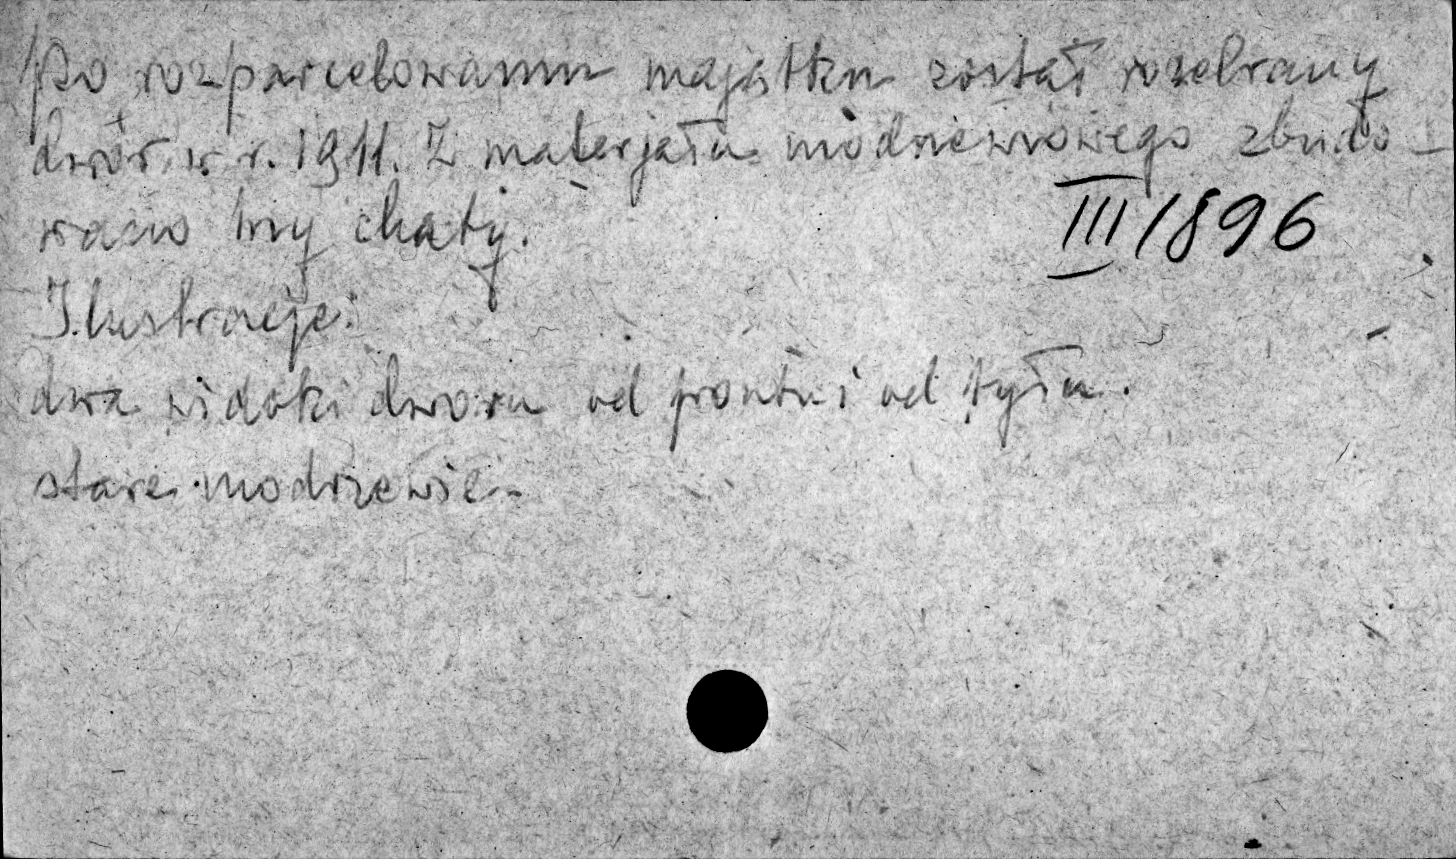 Po rozparcelowaniu majątku został rozebrany
dwór w r. 1911. Z materjału modrzewiowego zbudo-
wano trzy chaty.
III/1896
Ilustracje:
dwa widoki dworu od frontu i od tyłu.
stare modrzewie.